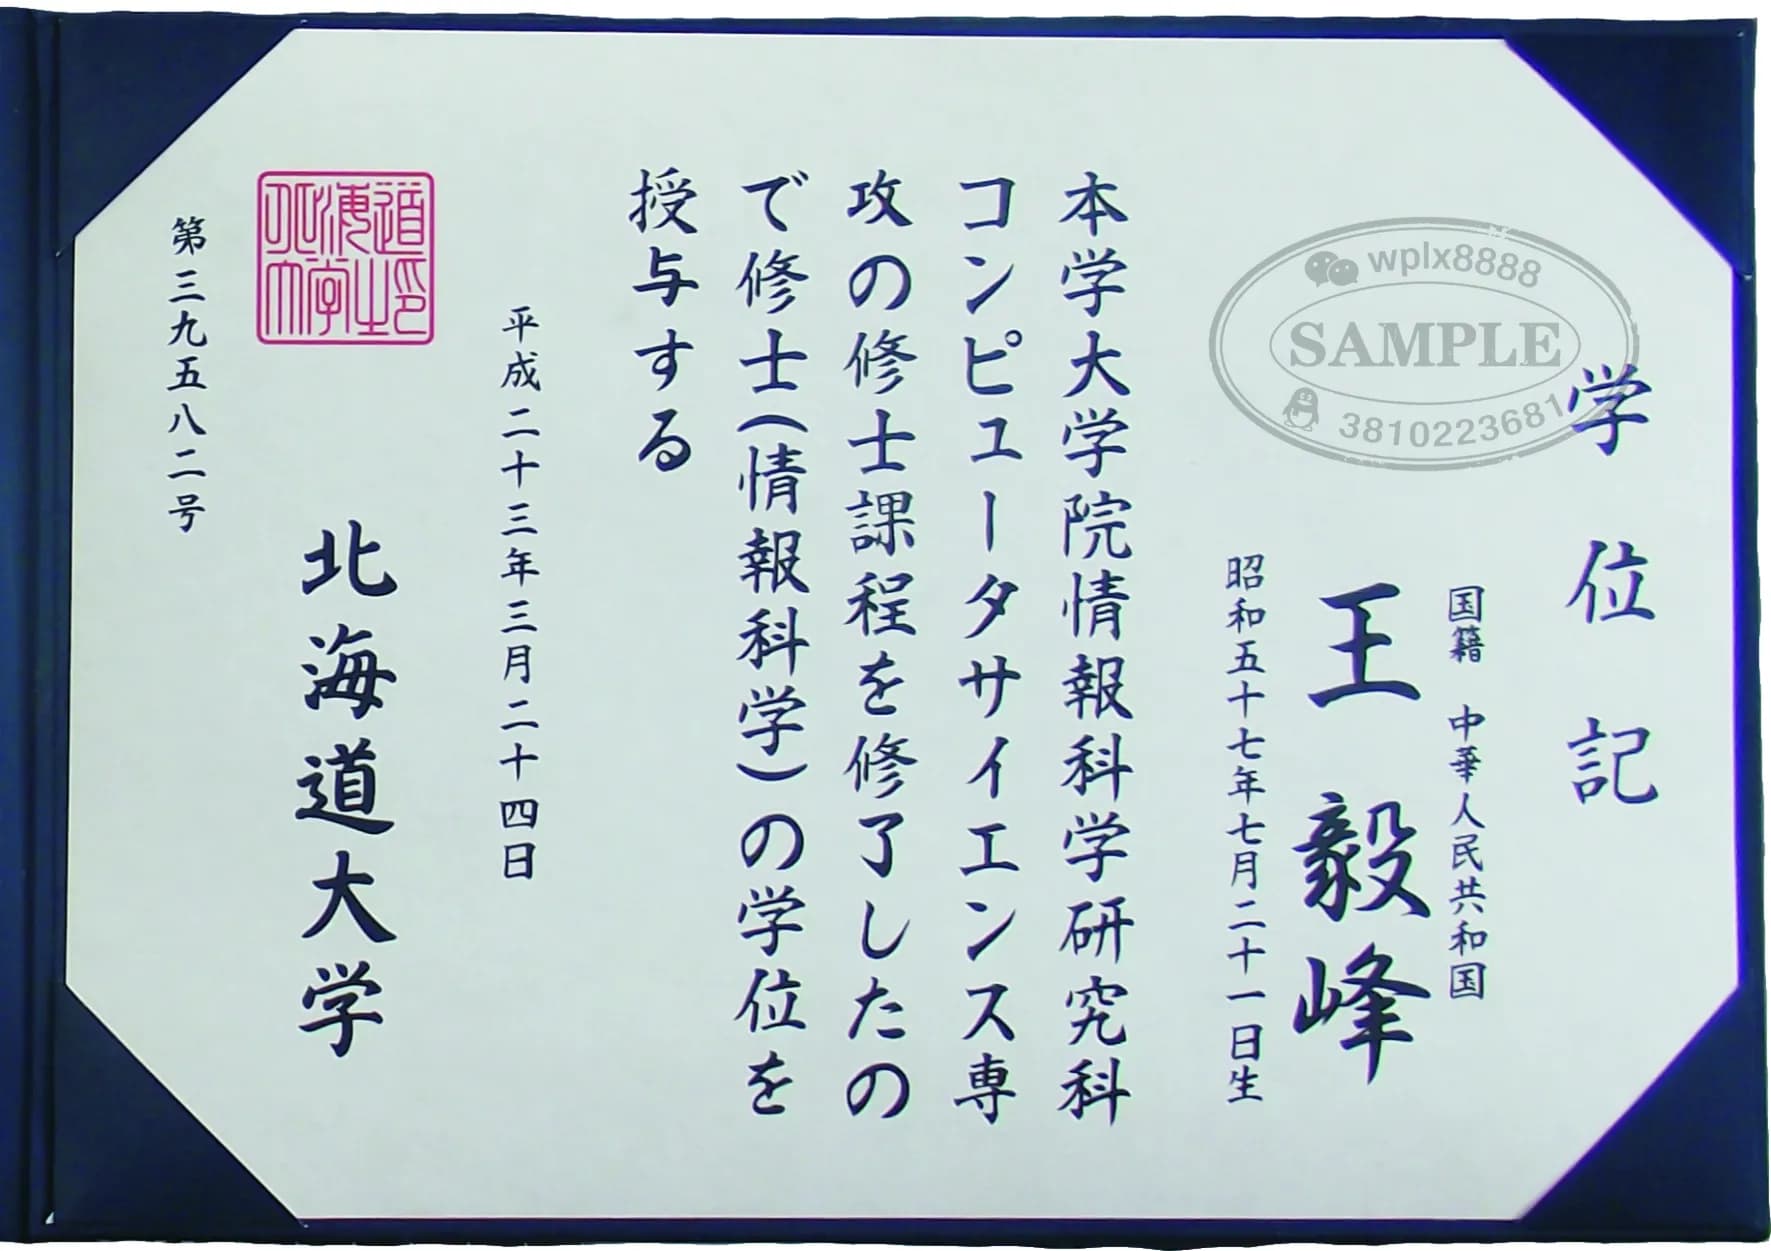 学位記
国籍 中華人民共和国
王毅峰
昭和五十七年七月二十一日生
本学大学院情報科学研究科
コンピュータサイエンス専
攻の修士課程を修了したの
で修士(情報科学)の学位を
授与する
平成二十三年三月二十四日
北海道大学
北海道大学之印
第三九五八二号
wplx8888
SAMPLE
3810223681